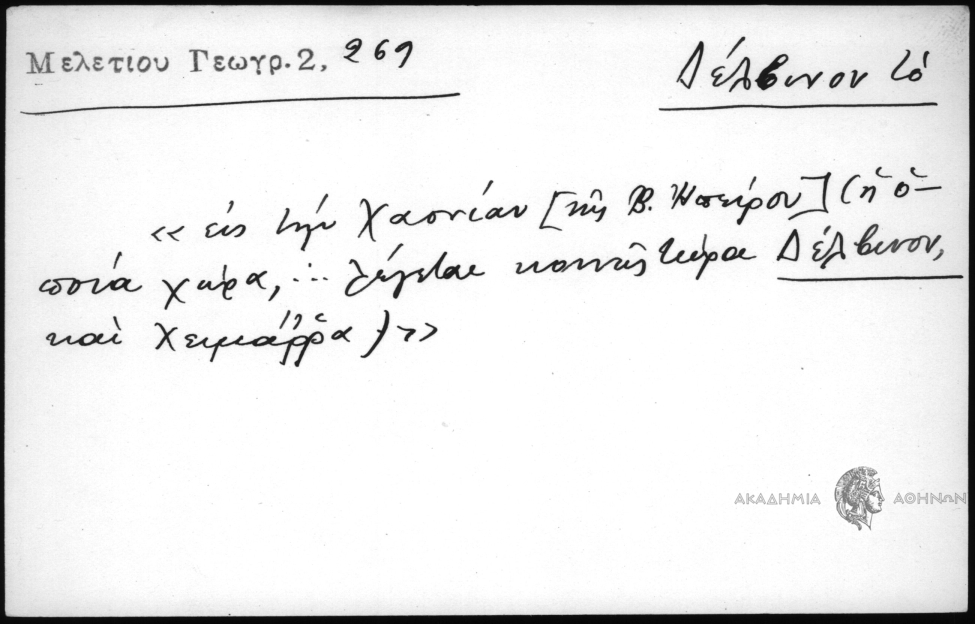 Μελετίου Γεωγρ. 2, 269
Δέλβινον τό
«εἰς τὴν Χαονίαν [τῆς Β. Ἠπείρου] (ἡ ὁ-
ποία χώρα, ... λέγεται κοινῶς τώρα Δέλβινον,
καὶ Χειμάῤῥα)»
ΑΚΑΔΗΜΙΑ ΑΘΗΝΩΝ